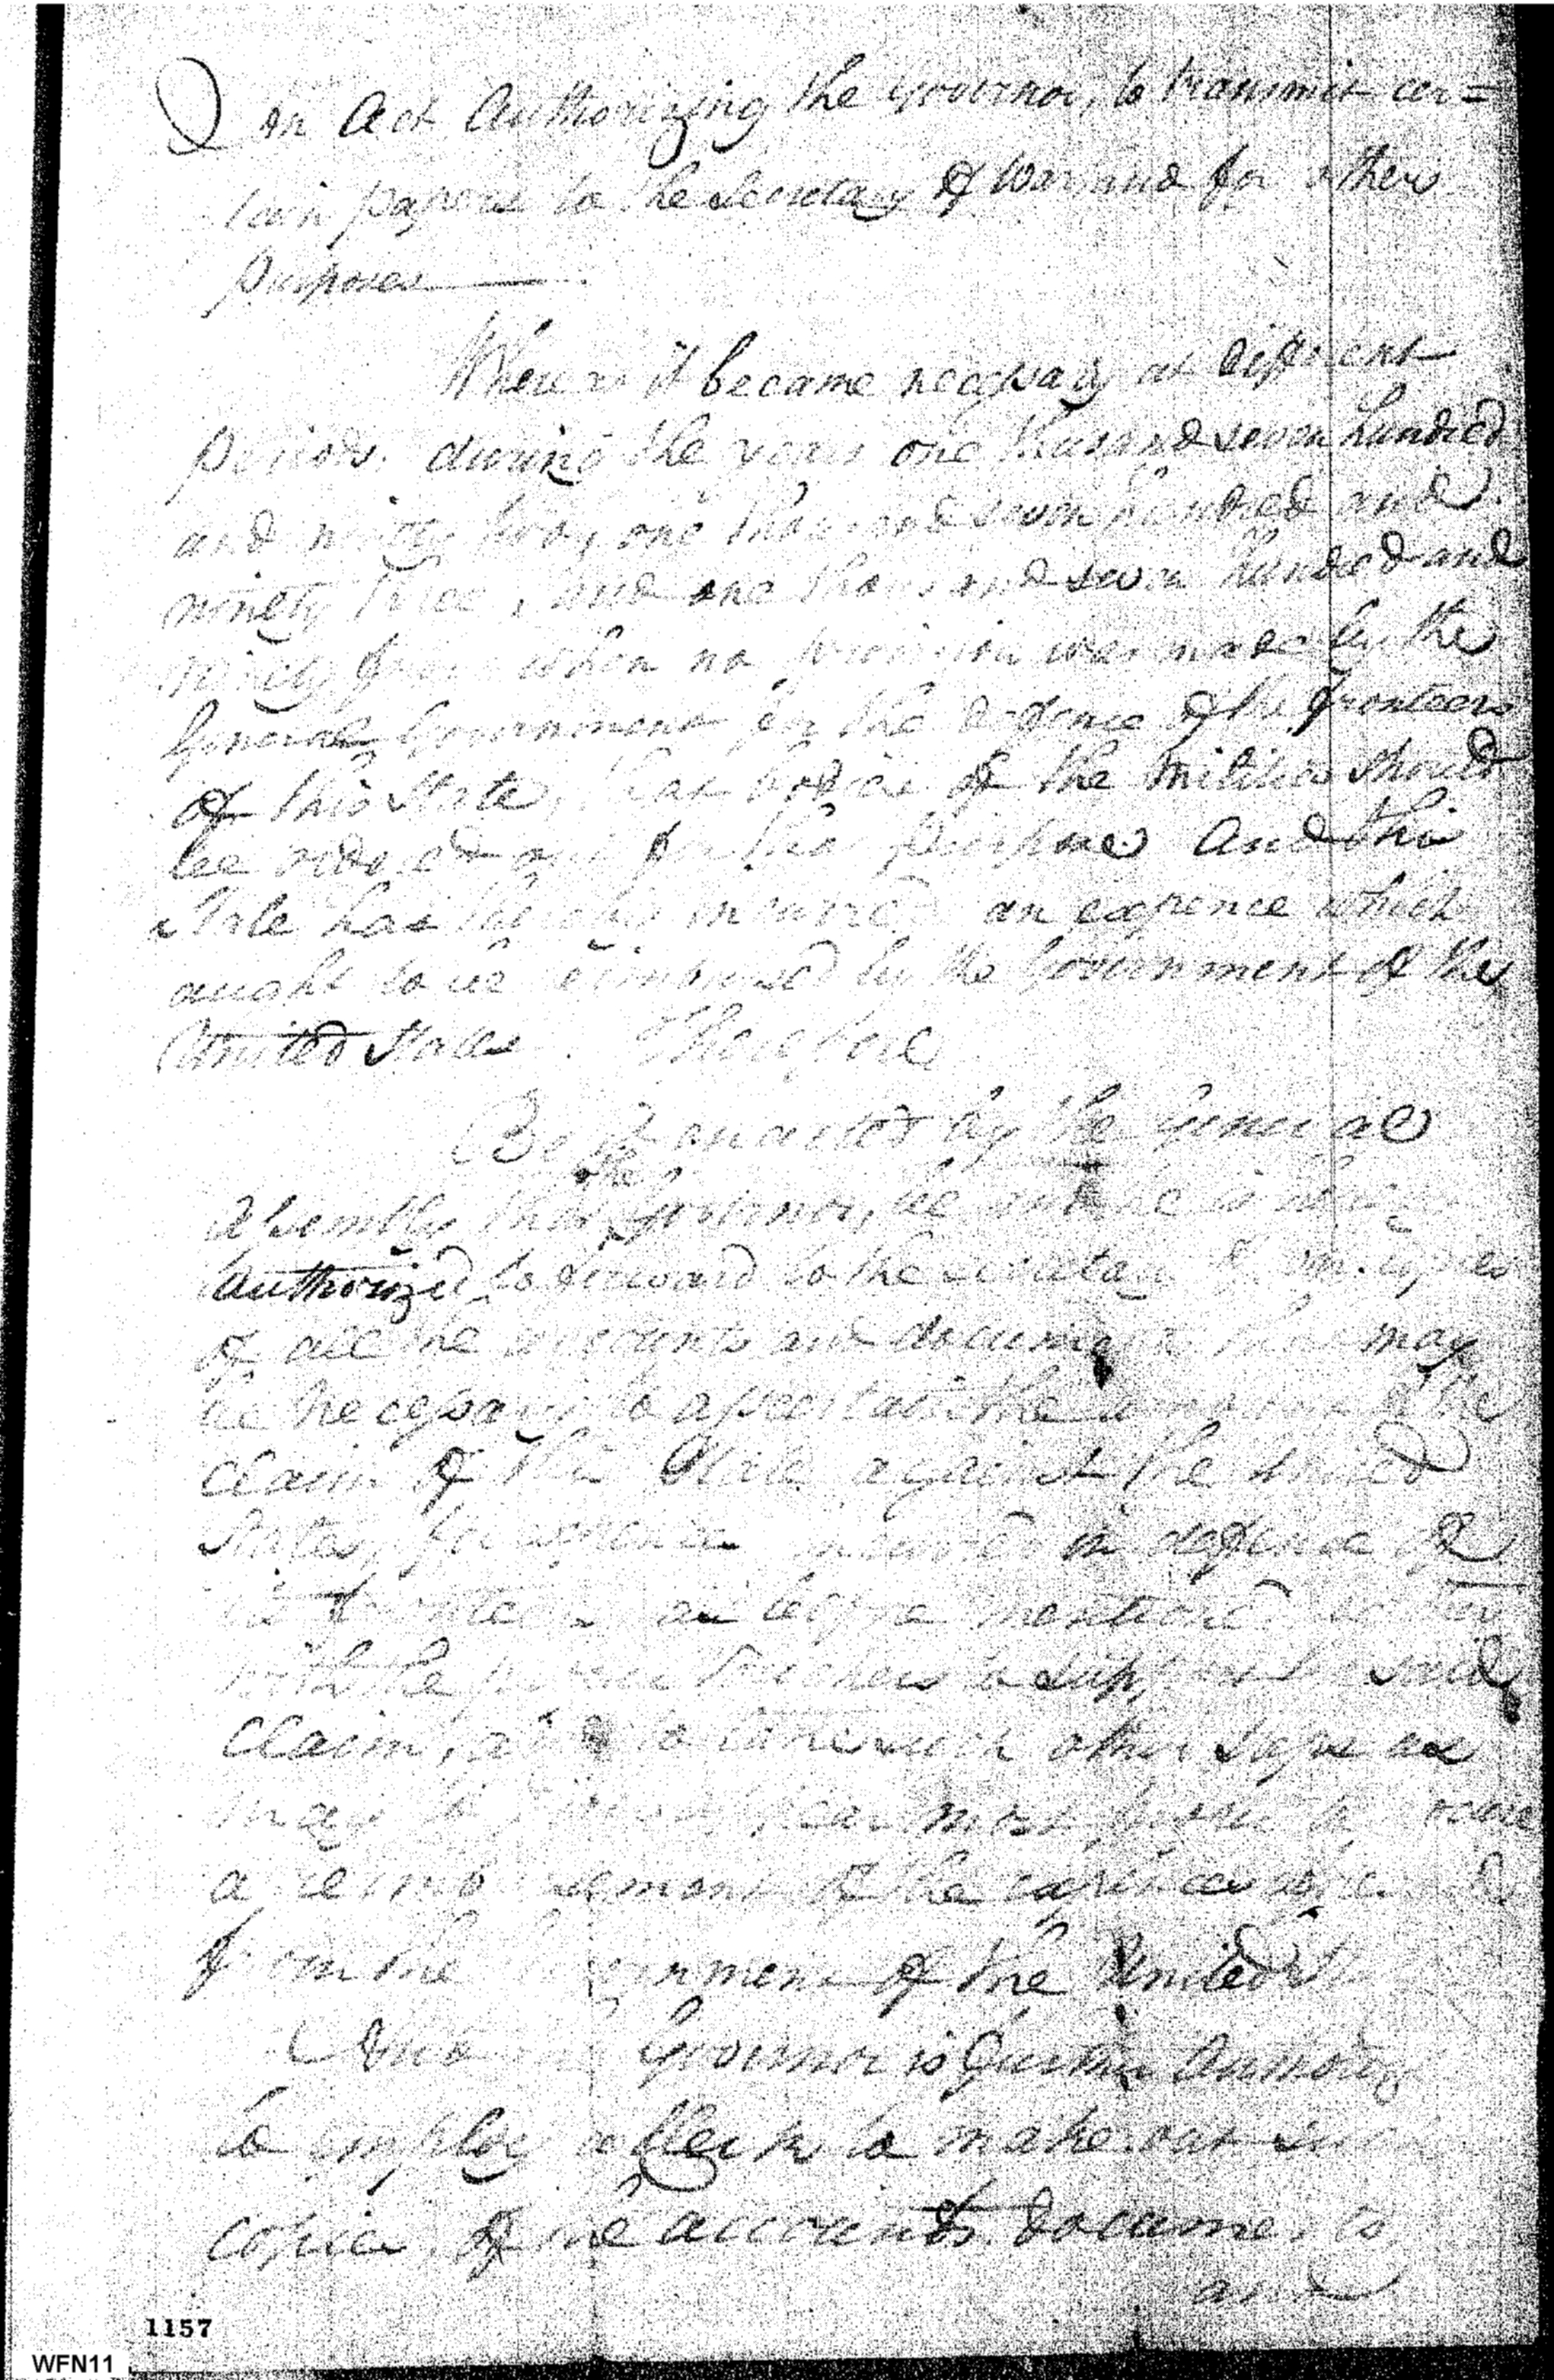 An Act Authorizing the Governor, to transmit cer=
tain papers to the Secretary of War and for other
Purposes
Whereas it became necessary at different
Periods during the years one thousand seven hundred
and ninety two, one thousand seven hundred and
ninety three, and one thousand seven hundred and
ninety four when no provision was made by the
General Government for the defence of the fronteers
of this State, that bodies of the militia should
be ordered out for that purpose And this
State has thereby incurred an expence which
aught to be reimbursed by the Government of the
United States. Therefore
Be it enacted by the General
the
Assembly that Governor, be and he is
Authorized to forward to the Secretary of War copies
of all the accounts and documents that may
be necessary to assertain the amount of the
claim of this State against the United
States, for expence incurred in defence of
its fronteers as before mentioned
with the Vouchers to support said
Claim, and to take such other steps as
may to him appear most proper to
a reimbursement of the expences
from the Government of the United
And Governor is further Authoriz
to employ a Clerk to make out
copies of the accounts. documents
and
1157
WFN11